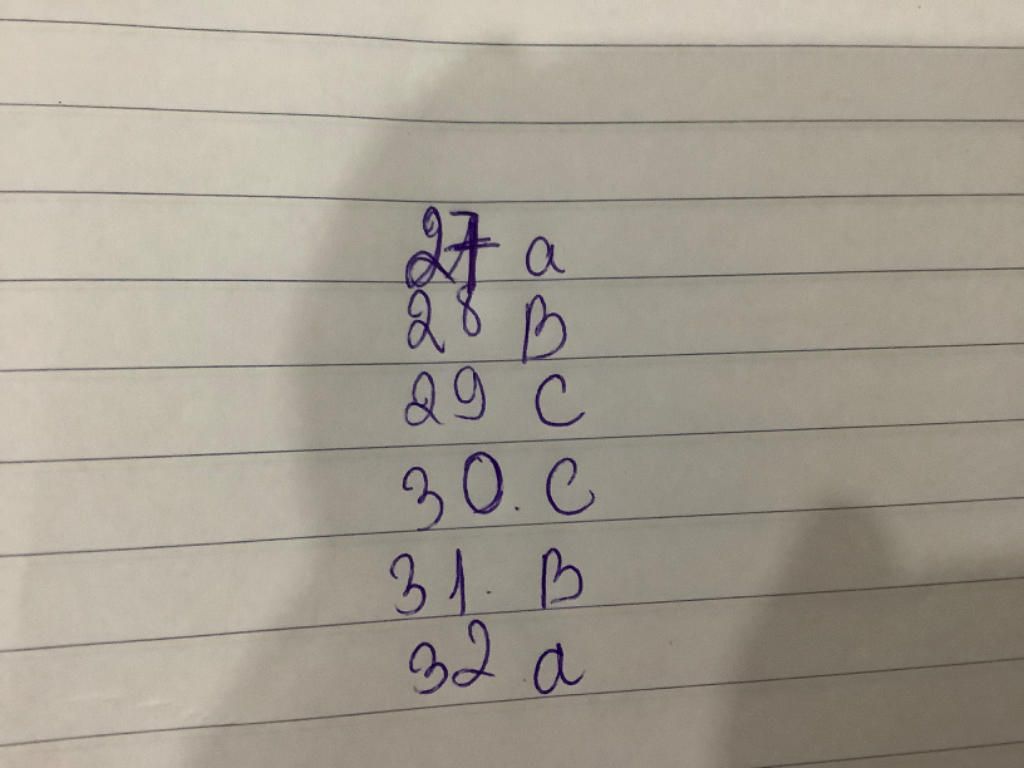 27 a
28 B
29 C
30. C
31. B
32 a